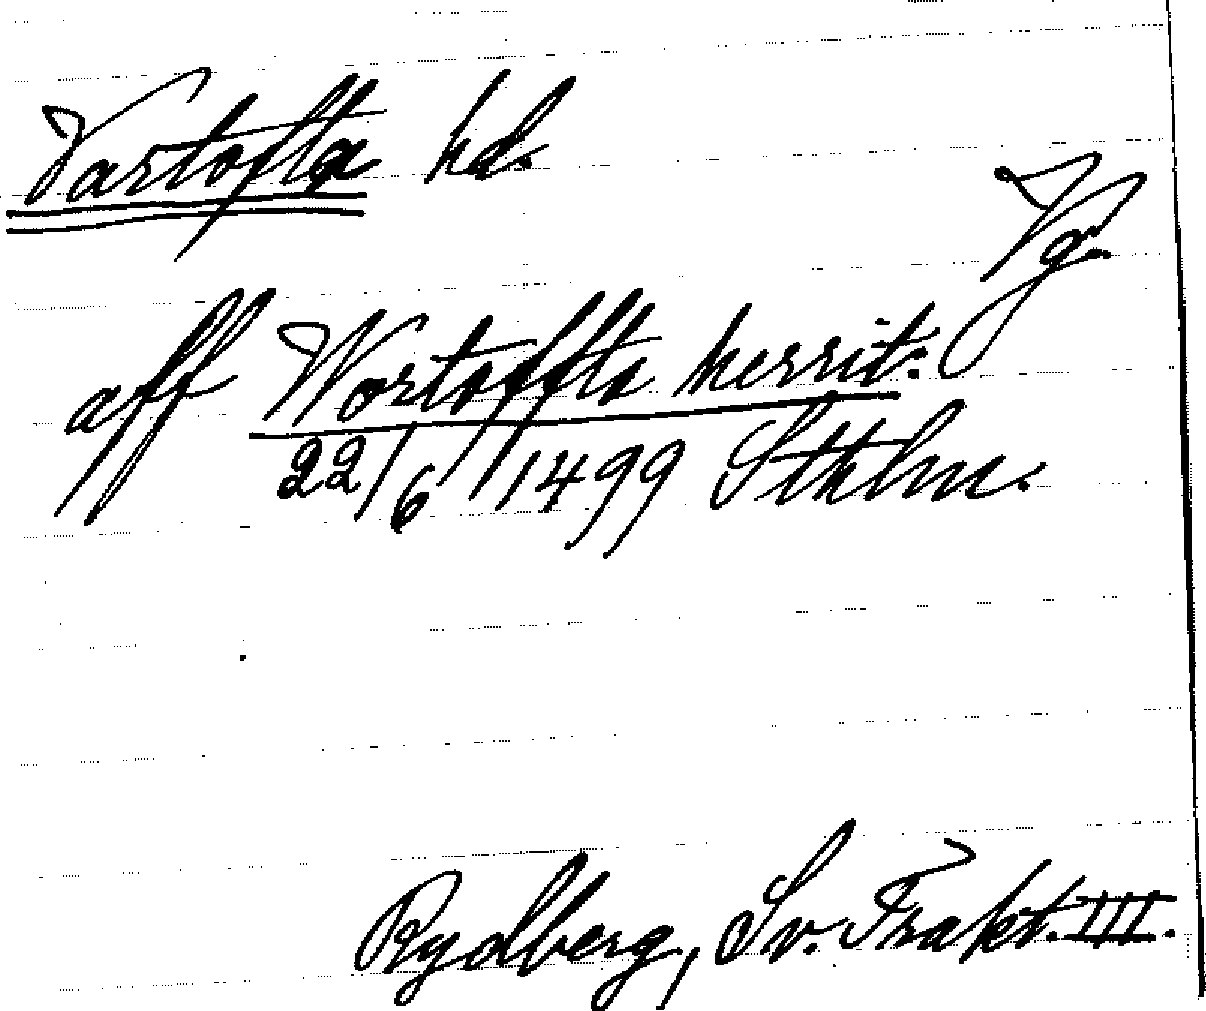 Vartofta hd.
Vg.
aff Wortoffta herrit.
22/6 1499 Sthlm.
Rydberg, Sv. Trakt. III.